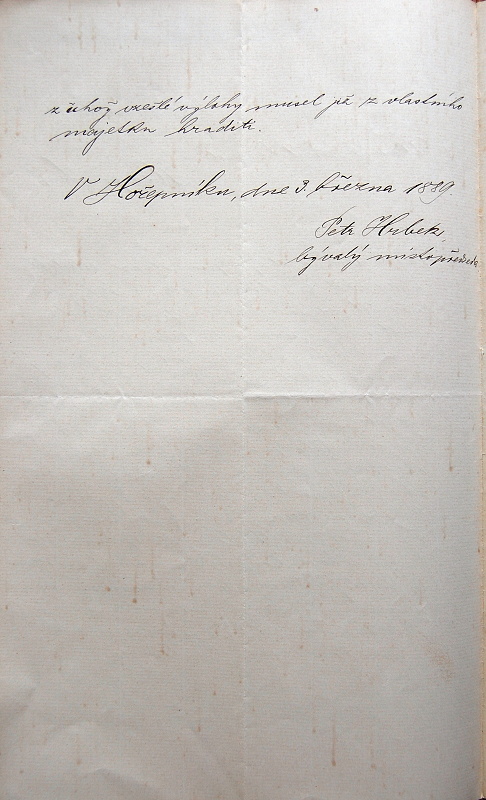 z čehož vzešlé výlohy musel již z vlastního
majetku hraditi.
V Hořepníku, dne 3. března 1889.
Petr Hrbek,
bývalý místopředseda